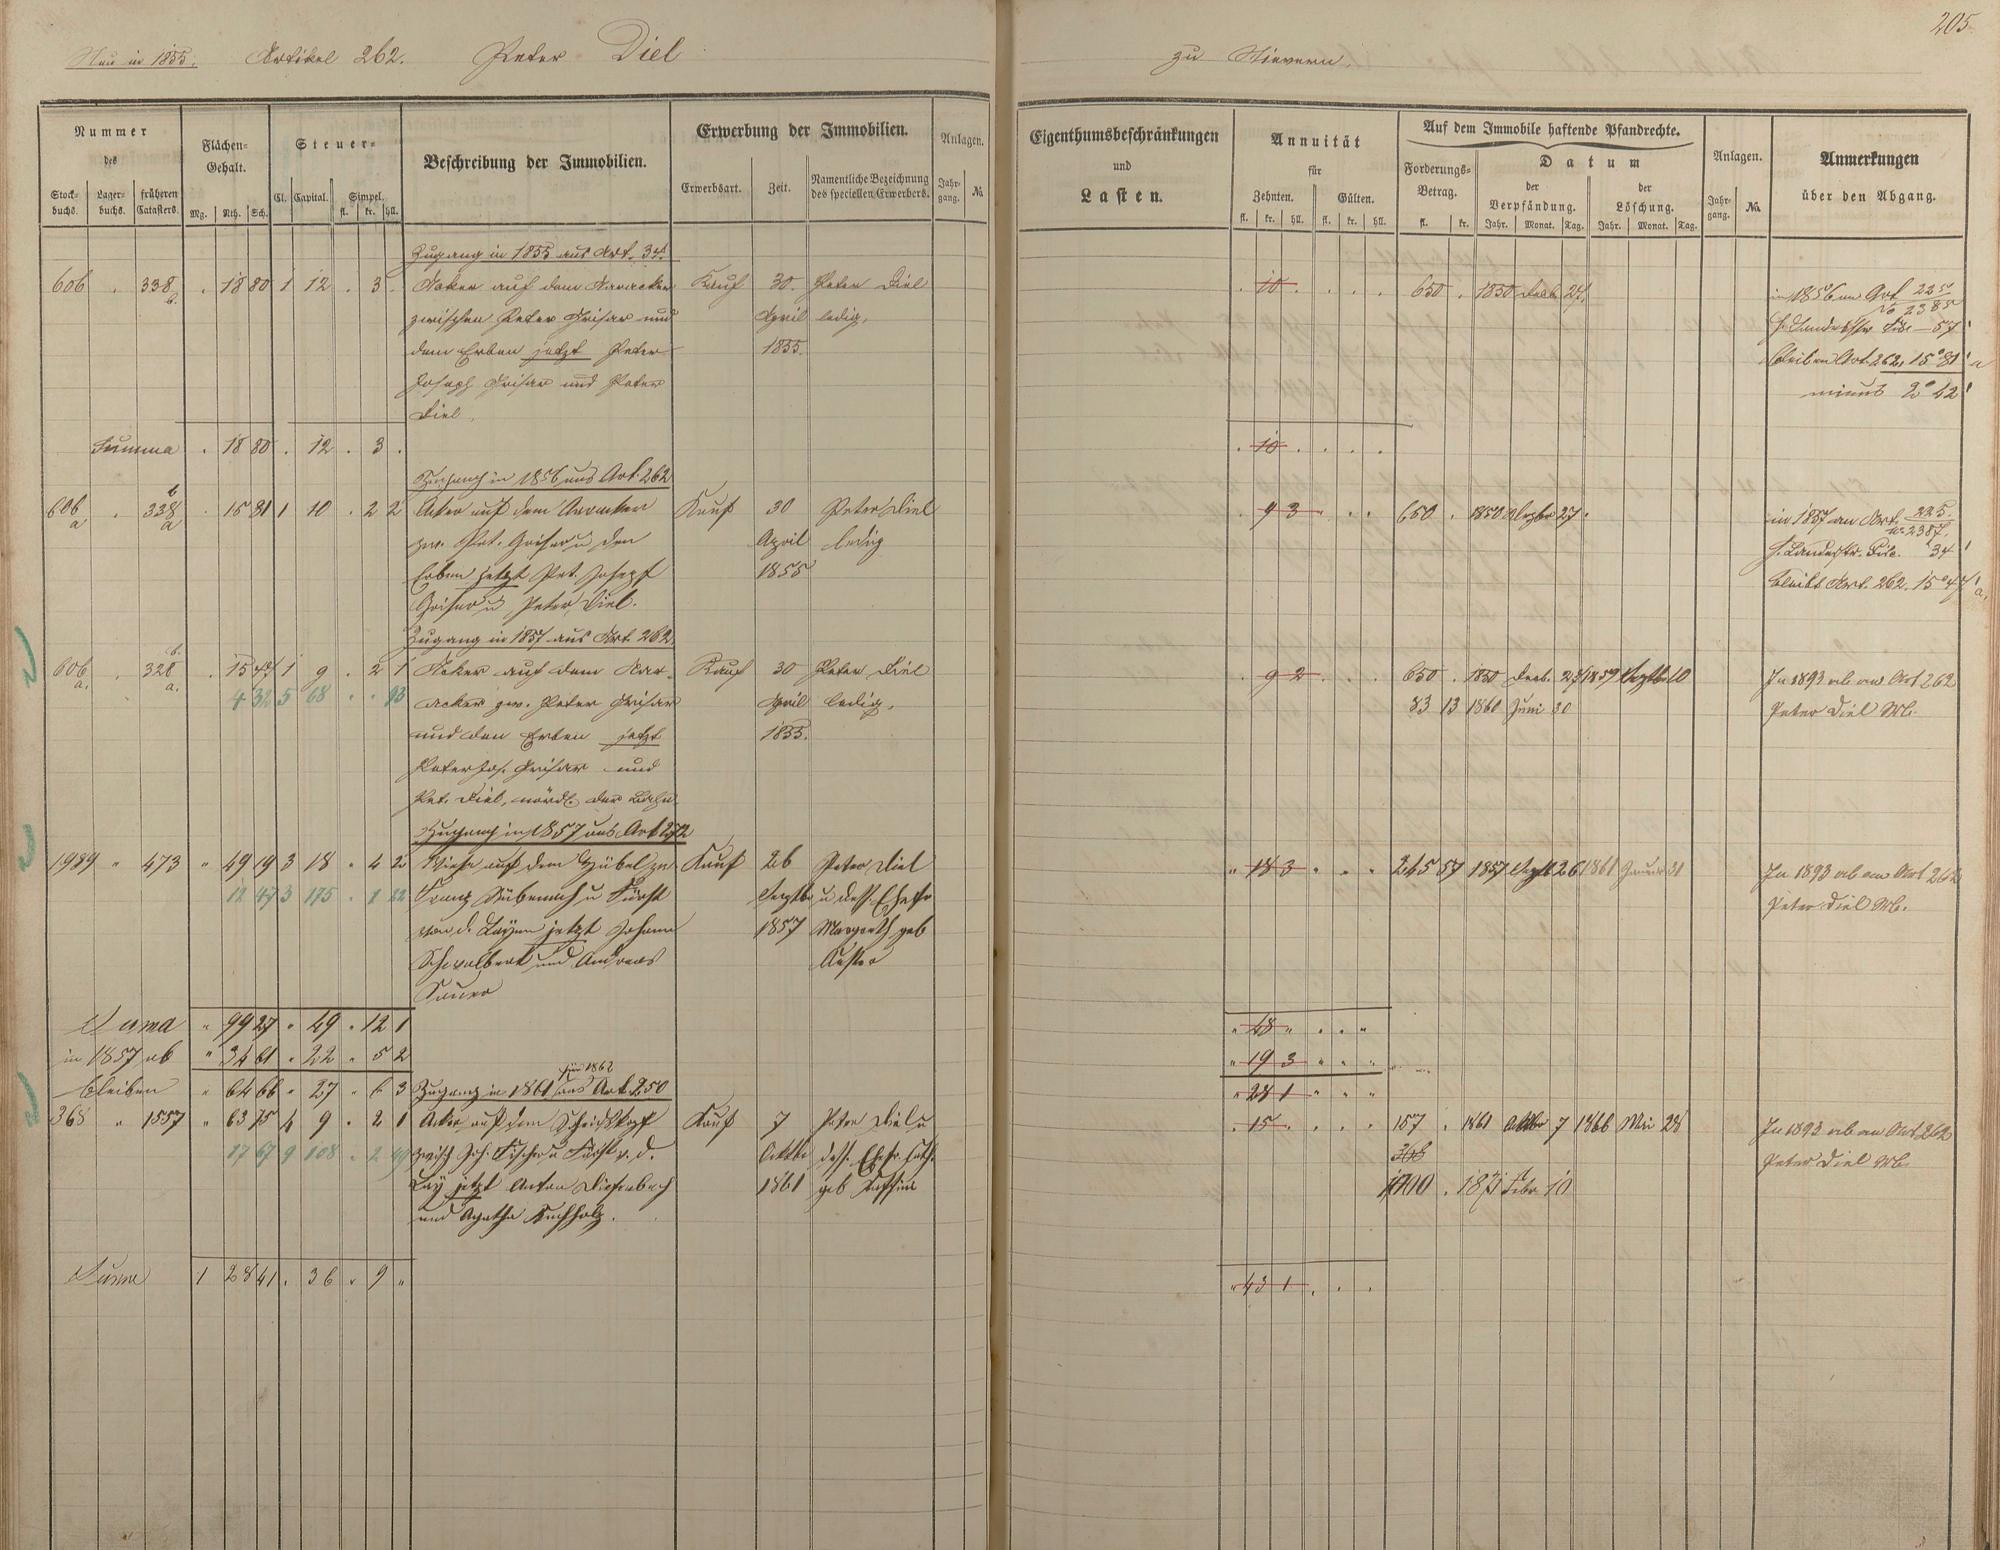 205.
Neu in 1855. Artikel 262. Peter Diel
zu Nievern.
Nummer des
Stockbuchs. Lagerbuchs. früheren Catasters.
Flächen-Gehalt.
Mg. Rth. Sch.
Steuer-
Cl. Capital. Simpel.
fl. kr. hll.
Beschreibung der Immobilien.
Erwerbung der Immobilien.
Erwerbsart. Zeit. Namentliche Bezeichnung des speciellen Erwerbers.
Anlagen.
Jahrgang. No.
Eigenthumsbeschränkungen
und
Lasten.
Annuität
für
Zehnten. Gülten.
fl. kr. hll. fl. kr. hll.
Auf dem Immobile haftende Pfandrechte.
Forderungs-Betrag.
fl. kr.
Datum
der Verpfändung. der Löschung.
Jahr. Monat. Tag. Jahr. Monat. Tag.
Anlagen.
Jahrgang. No.
Anmerkungen
über den Abgang.
Zugang in 1855 aus Art.
606 . 338 b. . 18 80 1 12 . 3 . Acker auf dem Kauf 30. Peter Diel
zwischen Peter Griser und April ledig,
dem Erben jetzt Peter 1855.
Joseph Griser und Peter
Diel.
. 10 . . . . 650 . 1850 Decb. 27.
in 1856 an Art 225
No 2385
57
bleiben Art. 262, 15° 81' a
minus 2° 42'
Summa . 18 80 . 12 . 3 .
. 10 . . . .
Zugang in 1856 aus Art. 262
606 a . 338 b a . 15 81 1 10 . 2 2 Acker auf dem Kauf 30 Peter Diel
zw. Pet. Griser u den April ledig
Erben jetzt Pet. Joseph 1855
Griser u Peter Diel.
. 9 3 . . . 650 . 1850 Dezbr 27.
in 1857 an Art. 225.
No 2387.
f. Landestr. 34'
bleibt Art. 262. 15° 47' a.
Zugang in 1857 aus Art. 262
606 a. . 328 b. a. . 15 47 1 9 . 2 1 Acker auf dem Kauf 30 Peter Diel
acker zw. Peter Griser April ledig.
und den Erben jetzt 1855.
Peter Jos. Griser und
Pet. Diel, nördl. der Bahn
. 9 2 . . . 650 . 1850 Decb. 27 1859 Septb 10
83 13 1861 Juni 30
In 1893 ab an Art 262
Peter Diel Wb.
Zugang in 1857 aus Art 272
1989 " 473 " 49 19 3 18 " 4 2 Wiese auf dem zw Kauf 26 Peter Diel
12 47 3 175 . 1 Franz u Fürst Septbr u dess. Ehefr
von d. Leyen jetzt Johann 1857 Margareth geb
und Andreas
Sauer
" 18 3 " . . 245 57 1857 Septb 26 1861 Januar 31
In 1893 ab an Art 262
Peter Diel Wb.
Suma " 99 27 " 49 " 12 1
in 1857 ab " 34 61 " 22 " 5 2
bleiben " 64 66 " 27 " 6 3
" 48 " " . "
" 19 3 " " . "
" 28 1 " " "
für 1862
Zugang in 1861 aus Art 250
368 " 1557 " 63 75 4 9 " 2 1 Acker auf dem Kauf 7 Peter Diel u
17 67 9 108 . 2 zwisch Joh. Fischer u Fürst v. d. Oktbr dess. Ehefr.
Ley jetzt Anton Diefenbach 1861 geb
und Agatha Buchholz.
. 15 . . . . 157 . 1861 Oktbr 7 1866 Mai 28
368
1700 . 1871 Febr 10
In 1893 ab an Art 262
Peter Diel Wb.
Suma 1 28 41 . 36 . 9 "
" 43 1 . . .